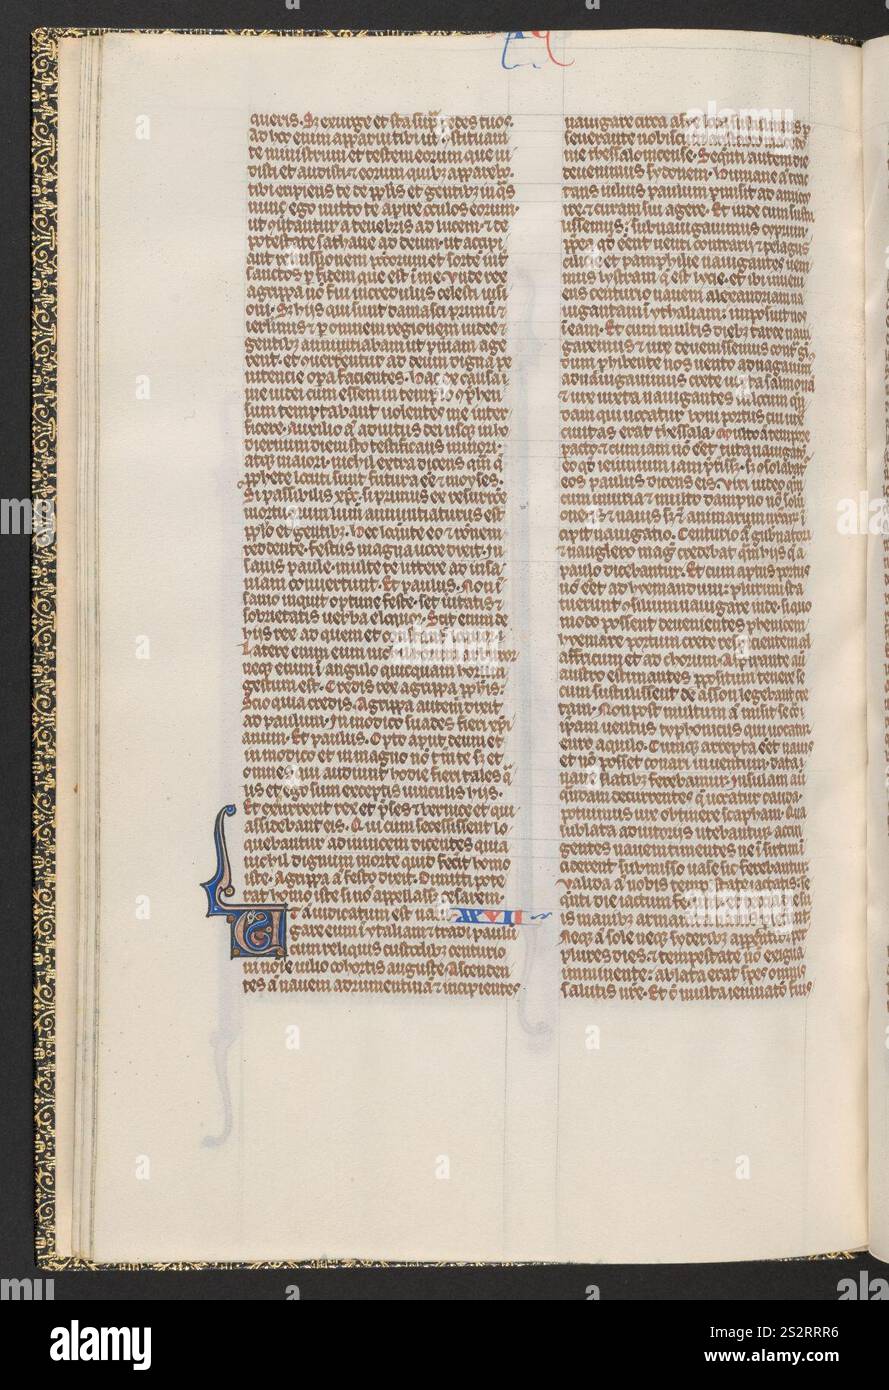 queris. Sʒ exurge et sta sup̄ pedes tuos.
Ad hoc enim apparui tibi ut ꝯstituam
te ministrum et testem eorum que ui
disti et audisti ⁊ eorum quibꝫ apparebo
tibi eripiens te de ppl̄is et gentibꝫ in q̄s
nunc ego mitto te aperire oculos eorum
ut ꝯuertantur a tenebris ad lucem ⁊ de
potestate sathane ad deum. ut accipi
ant remissionem pctōrum et sortē int̄
sanctos ꝑ fidem que est ī me. Vnde rex
agrippa nō fui incredulus celesti uisi
oni. Sʒ hijs qui sunt damasci primū ⁊
ierlimis ⁊ ꝑ omnem regionem iudee ⁊
gentibꝫ annuntiabam ut pniam age
rent. et ꝯuerterentur ad deum digna pe
nitencie opera facientes. Hac de causa ī
me iudei cum essem in templo ꝯphen
sum temptabant uolentes me inter
ficere. Auxilio ā adiutus dei usqꝫ in ho
diernum diem sto testificans minori.
atqꝫ maiori. nichil extra dicens qm̄ q̄
ꝓphete locuti sunt futura eē ⁊ moyses.
Si passibilis xp̄c. si primus ex resurrcōe
mortuorum lum̄ annuntiaturus est
ppl̄o et gentibꝫ. Hec loq̄nte eo ⁊ rōnem
reddente. festus magna uoce dixit. In
sanis paule. multe te littere ad insa
niam conuertunt. Et paulus. Non ī
sanio inquit optime feste. set ueritatis ⁊
sobrietatis uerba eloquor. Scit enim de
hijs rex ad quem et constanter loquor.
Latere enim eum nichil horum arbitror
neqꝫ enim ī angulo quicquam horum
gestum est. Credis rex agrippa ꝓphis.
Scio quia credis. Agrippa autem dixit
ad paulum. In modico suades fieri xp̄i
anum. Et paulus. Opto aput deum et
in modico et in magno nō tm̄ te sʒ et
omnes qui audiunt hodie fieri tales q̄
lis et ego sum exceptis uinculis hijs.
Et exurrexit rex et p̄ses ⁊ bernice et qui
assidebant eis. Qui cum secessissent lo
quebantur ad inuicem dicentes quia
nichil dignum morte quid fecit homo
iste. Agrippa ā festo dixit. Dimitti pote
rat homo iste si nō appellasset cesarem.
UT ā iudicatum est naui XXVII
gare eum ī ytaliam ⁊ tradi paulū
cum reliquis custodibꝫ centurio
ni noīe iulio cohortis auguste. Ascenden
tes ā nauem adrumentinā ⁊ incipientes
nauigare circa asye loca sustulimus ꝑ
seuerante nobiscum aristarcho macedo
ne thessalonicense. Sequti autem die
deuenimus sydonem. Humane ā trac
tans iulius paulum ꝑmisit ad amicos
ire ⁊ curam sui agere. Et inde cum sustu
lissemus. subnauigauimus cyprum.
ꝓpea qd̄ eēnt uenti contrarij ⁊ pelagus
cilicie et pamphilie nauigantes ueni
mus lystram q̄ est lycie. et ibi inueni
ens centurio nauem alexandrinam na
uigantam ī ythaliam. imposuit nos
ī eam. Et cum multis diebꝫ tarde naui
garemus ⁊ uix deuenissemus contͣ gī
dum ꝓhibente nos uento adnauigauim
adnauigauimus crete iuxta salmonā
⁊ uix iuxta nauigantes uenimus locum q̄n
dam qui uocatur boni portus cui iux
ciuitas erat thessala. Multo ā tempore
pacto ⁊ cum iam nō eēt tuta nauigatō
eo qd̄ ieiunium iam p̄tissʒ. ꝯsolabatͬ
eos paulus dicens eis. Viri uideo qm̄
cum iniuria ⁊ multo dampno nō solū
oneris ⁊ nauis sʒ ⁊ animarum nr̄arum ī
cipit nauigatio. Centurio ā gubnatori
⁊ nauglero magꝭ credebat qm̄ hijs q̄ a
paulo dicebantur. Et cum aptus portus
nō eēt ad hyemandum. plurimi sta
tuerunt ꝯsilium nauigare inde. si quo
modo possent deuenientes phenicem
hyemare portum crete respicientem ad
affricum et ad chorum. Aspirante aū
austro estimantes propositum tenere se
cum sustulissent de asson legebant cre
tam. Non post multum ā misit se cͨtͣ
ip̄am uentus typhonicus qui uocatur
euro aquilo. Cumqꝫ arrepta eēt nauis
et nō posset conari in uentum. data
naue flatibꝫ ferebamur. Insulam aū
quidam decurrentes q̄ uocatur cauda.
potuimus uix obtinere scapham. Qua
sublata adiutorijs utebantur. accin
gentes nauem timentes ne ī sirtim ī
ciderent summisso uase sic ferebantur.
Valida ā nobis tempestate iactatis. se
qn̄ti die iactum fecerunt. et tercia die su
is manibꝫ armamenta nauis proiecerunt.
Necqꝫ ā sole neqꝫ syderibꝫ apparentibꝫ per
plures dies. ⁊ tempestate nō exigua
imminente. ablata erat spes omnis
salutis nr̄e. Et cͫ multa ieiunatō fuis